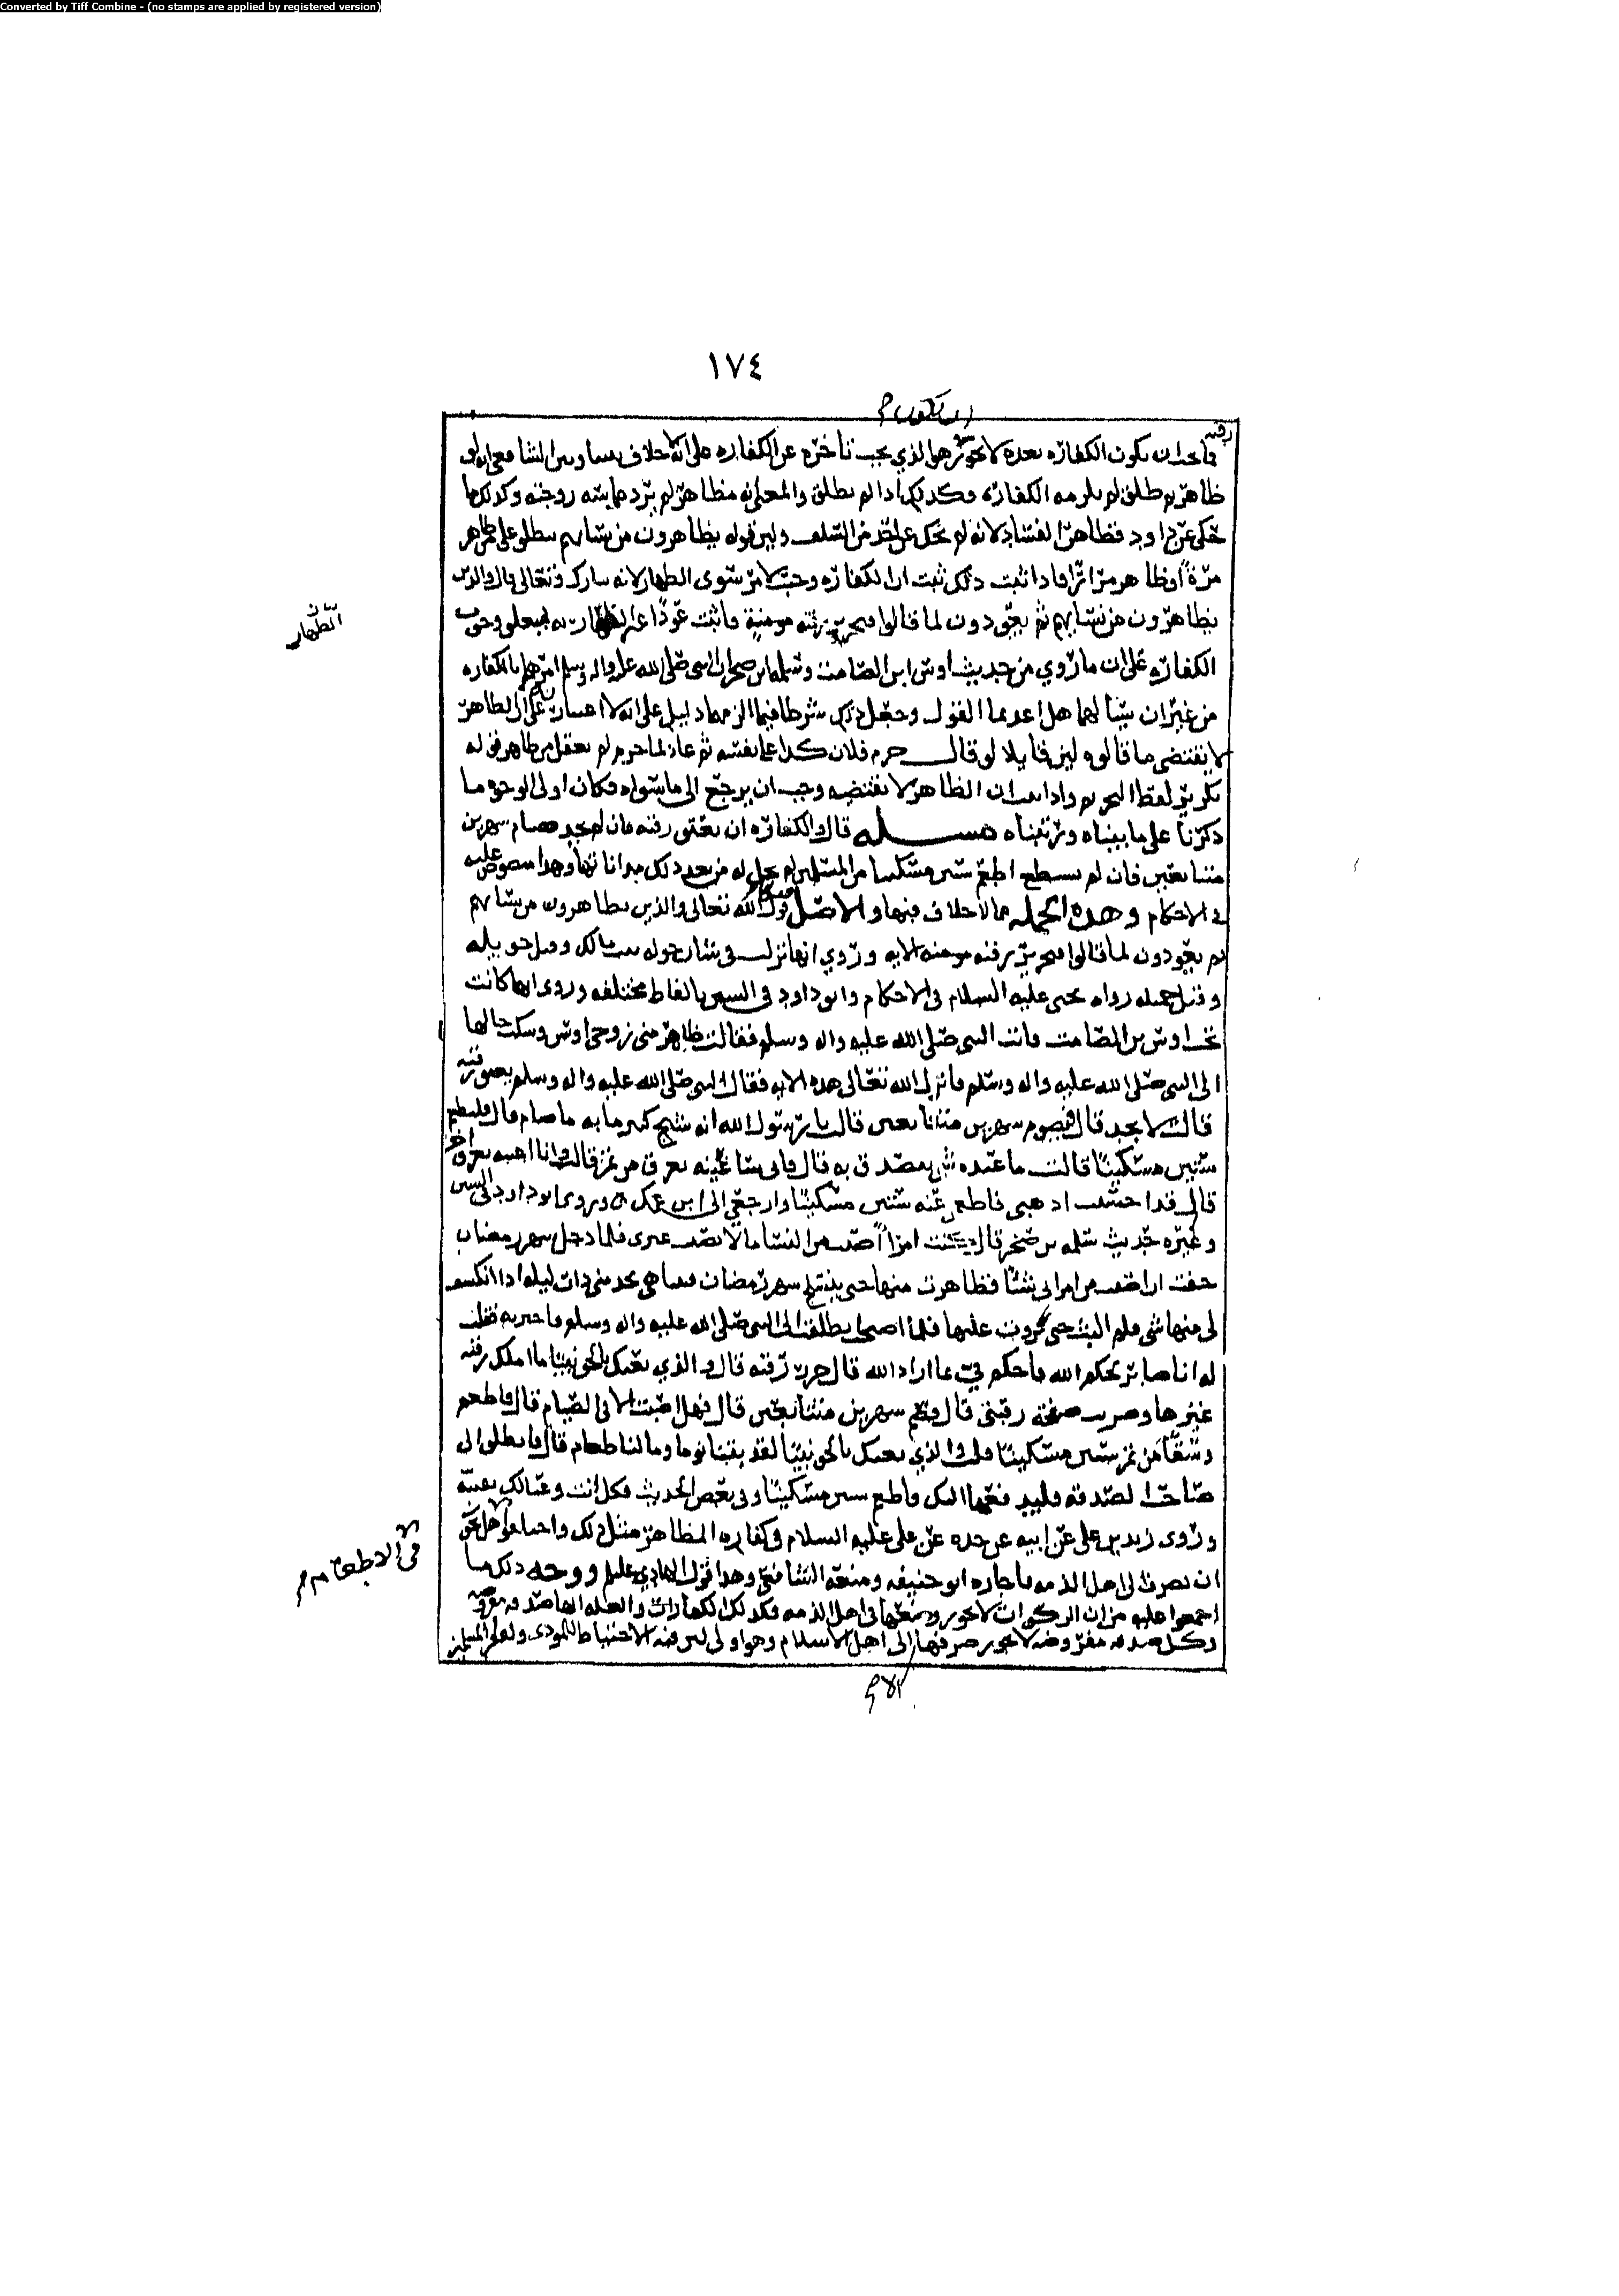 Converted by Tiff Combine - (no stamps are applied by registered version)
١٧٤
ان تكون
فاحد ان يكون الكفاره بعده لا يجوز هو الذي يجب تاخره عن الكفاره على انه لا خلاف بيننا وبين الشافعي انه لو
ظاهر ثم طلق لم يلزمه الكفاره فكذلك اذا لم يطلق والمعنى انه مظاهر لم يرد مماسه زوجته وكذلك ما
حكي عن داود فظاهر الفساد لانه لم يحك عن احد من السلف وليس قوله يظاهرون من نسائهم ينطلق على من ظاهر
مرة او ظاهر مرارا فاذا ثبت ذلك ثبت ان الكفاره وجبت لامر سوى الظهار لانه تبارك وتعالى قال والذين
يظاهرون من نسائهم ثم يعودون لما قالوا فتحرير رقبه مومنة فاثبت عودا غير الظهار به وجوب
الظهار
الكفاره على ان ما روي من حديث اوس ابن الصامت وسلمه ابن صخر ان النبي صلى الله عليه واله وسلم امرهما بالكفاره
من غير ان يسالهما هل اعدتما القول وجعل ذلك شرطا فيما الزمهما دليل على انه لا على ان الظاهر
لا يقتضي ما قالوه لان قايلا لو قال حرم فلان كذا على نفسه ثم عاد لما حرم لم يعقل من ظاهر قوله
تكرير لفظ التحريم واذا ان الظاهر لا يقتضيه وجب ان يرجع الى ما سواه فكان اولى الوجوه ما
ذكرنا على ما بيناه ورتبناه مسله قال والكفاره ان يعتق رقبه فان لم يجد صام شهرين
متتابعين فان لم يستطع اطعم ستين مسكينا من المسلمين ثم يحل له من بعد ذلك مداناتها وهذا منصوص عليه
في الاحكام وهذه الجمله مما لا خلاف فيها والاصل فيها قول الله تعالى والذين يظاهرون من نسائهم
ثم يعودون لما قالوا فتحرير رقبه مومنه الايه وروي انها نزلت في شان خوله بنت مالك وقيل خويله
وقيل جميله رواه يحيى عليه السلام في الاحكام وابو داود في السنن بالفاظ مختلفه وروي انها كانت
تحت اوس بن الصامت فاتت النبي صلى الله عليه واله وسلم فقالت ظاهر مني زوجي اوس وشكت حالها
الى النبي صلى الله عليه واله وسلم فانزل الله تعالى هذه الايه فقال النبي صلى الله عليه واله وسلم يعتق رقبه
قالت لا يجد قال فيصوم شهرين متتابعين قالت يا رسول الله انه شيخ كبير ما به ما صام قال فليطعم
ستين مسكينا قالت ما عنده شي يتصدق به قال فاني ساعينه بعرق من تمر قالت وانا اعينه بعرق اخر
قال قد احسنت اذهبي فاطعمي عنه ستين مسكينا وارجعي الى ابن عمك وروى ابو داود في السنن
وغيره حديث سلمه بن صخر قال كنت امرا اصيب من النسا ما لا يصيب غيري فلما دخل شهر رمضان
خفت ان اصيب من امراتي شيا فظاهرت منها حتى ينسلخ شهر رمضان فبينا هي تخدمني ذات ليله اذ انكشف
لي منها شي فلم البث حتى نزوت عليها فلما اصبحت انطلقت الى النبي صلى الله عليه واله وسلم فاخبرته فقلت
له انا صابر لحكم الله فاحكم في بما اراد الله قال حرر رقبه قال والذي بعثك بالحق نبيا ما املك رقبه
غيرها وضربت صفحة رقبتي قال فصم شهرين متتابعين قال فهل اصبت الا في الصيام قال فاطعم
وسقا من تمر ستين مسكينا قلت والذي بعثك بالحق نبيا لقد بتنا يوما وما لنا طعام قال فانطلق الى
صاحب الصدقه فليدفعها اليك فاطعم ستين مسكينا وفي بعض الحديث وكل انت وعيالك بقيته
وروى زيد بن علي عن ابيه عن جده عن علي عليه السلام في كفاره المظاهر مثل ذلك واختلفوا هل يجوز
في الاطعام
ان تصرف الى اهل الذمه فاجازه ابو حنيفه ومنعه الشافعي وهذا قول الهادي عليلم ووجه ذلك ما
اجمعوا عليه من ان الزكوات لا يجوز وضعها في اهل الذمه فكذلك الكفارات والعله انها صدقه مفروضه
وكل صدقه مفروضه لا يجوز صرفها الا الى اهل الاسلام وهو اولى لان فيه الاحتياط للمودي ولفقرا المسلمين